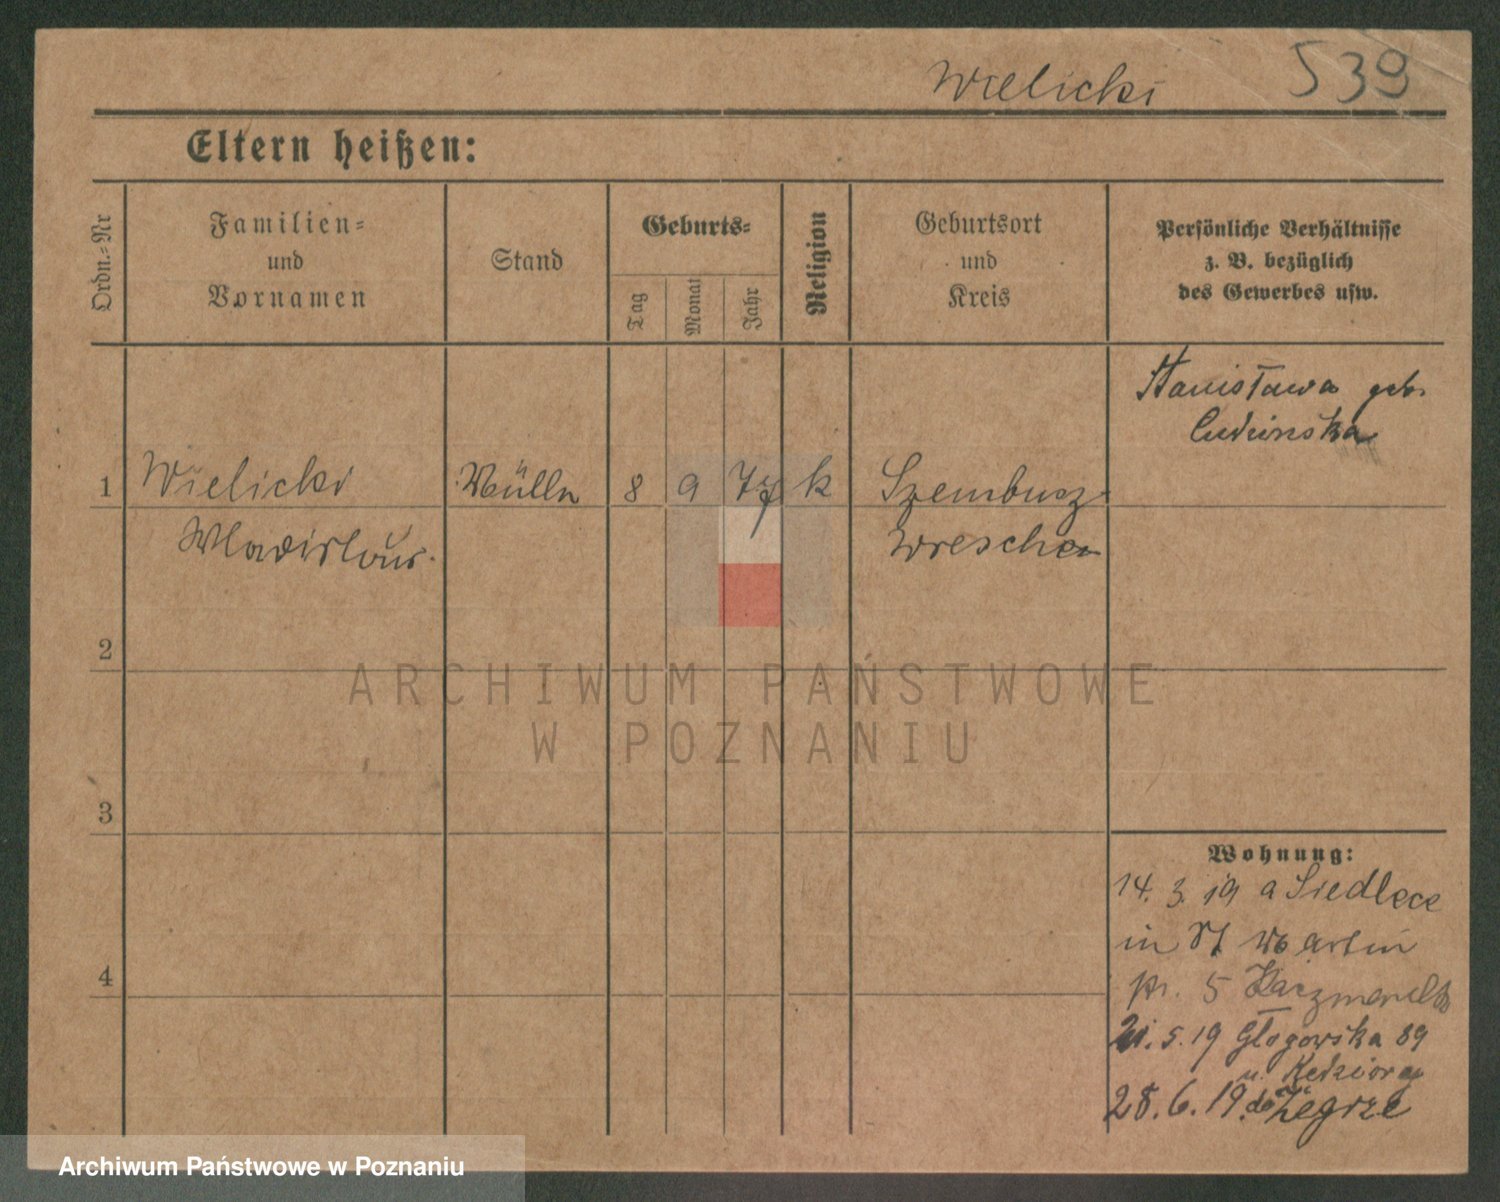 Wielicki 539
Eltern heißen:
Ordn.=Nr
Familien=
und
Vornamen
Stand
Geburts=
Tag
Monat
Jahr
Religion
Geburtsort
und
Kreis
Persönliche Verhältnisse
z. B. bezüglich
des Gewerbes usw.
Stanisława geb.
1 Wielicki Müller 8 9 77 k
Wladislaus
Wreschen
2
3
4
Wohnung:
14. 3. 19 a Siedlece
in St Martin
pr. 5 Kaczmarek
21. 5. 19 Głogowska 89
u. Kedziora
28. 6. 19. do Żegrze
ARCHIWUM PAŃSTWOWE
W POZNANIU
Archiwum Państwowe w Poznaniu